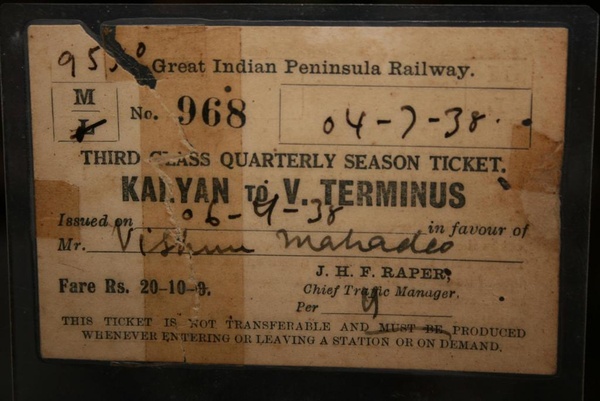 9550
Great Indian Peninsula Railway.
M
L
No. 968
04-7-38
THIRD CLASS QUARTERLY SEASON TICKET.
KALYAN TO V. TERMINUS
Issued on 06-4-38 in favour of
Mr. Vishnu Mahadeo
Fare Rs. 20-10-9.
J. H. F. RAPER,
Chief Traffic Manager.
Per
THIS TICKET IS NOT TRANSFERABLE AND MUST BE PRODUCED
WHENEVER ENTERING OR LEAVING A STATION OR ON DEMAND.